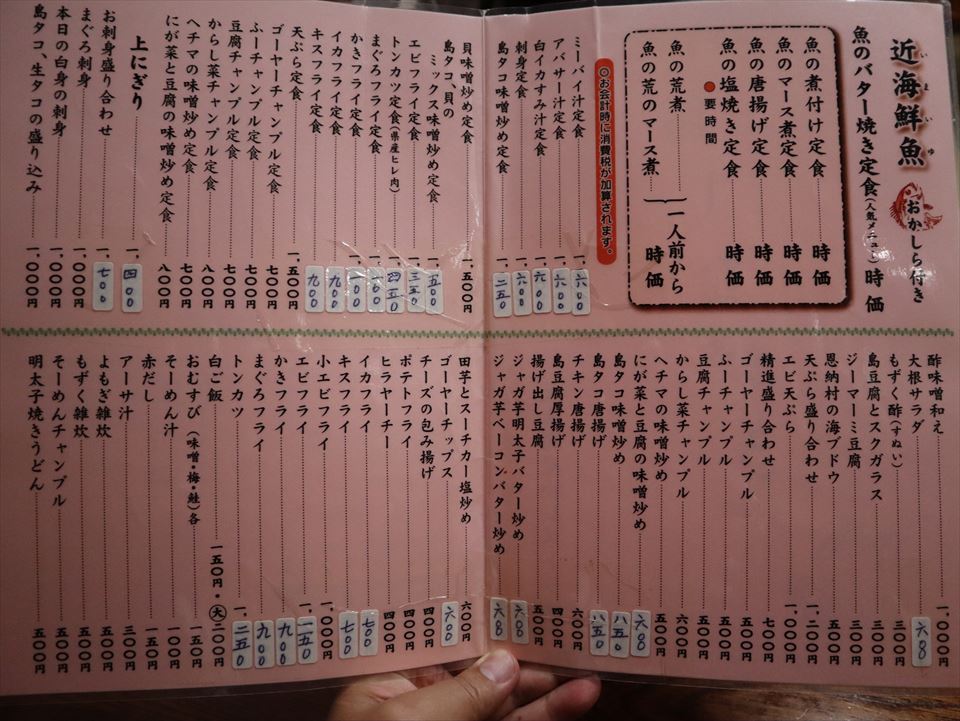 近海鮮魚
いまいゆ
おかしら付き
魚のバター焼き定食(人気メニュー)時価
魚の煮付け定食 時価
魚のマース煮定食 時価
魚の唐揚げ定食 時価
魚の塩焼き定食 時価
●要時間
魚の荒煮
魚の荒のマース煮
一人前から 時価
○お会計時に消費税が加算されます。
ミーバイ汁定食 一、六〇〇
アバサー汁定食 一、六〇〇
白イカすみ汁定食 一、六〇〇
刺身定食 一、六〇〇
島タコ味噌炒め定食 一、二五〇
貝味噌炒め定食 一、五〇〇円
島タコ、貝の
ミックス味噌炒め定食
エビフライ定食 一、三五〇
トンカツ定食(県産ヒレ肉) 一、四五〇
まぐろフライ定食
かきフライ定食
イカフライ定食 九〇〇
キスフライ定食 九〇〇
天ぷら定食 一、五〇〇円
ゴーヤーチャンプル定食 七〇〇円
ふーチャンプル定食 七〇〇円
豆腐チャンプル定食 七〇〇円
からし菜チャンプル定食 八〇〇円
ヘチマの味噌炒め定食 七〇〇円
にが菜と豆腐の味噌炒め定食 八〇〇円
上にぎり 一、四〇〇
お刺身盛り合わせ 一、七〇〇
まぐろ刺身 一、〇〇〇円
本日の白身の刺身 一、〇〇〇円
島タコ、生タコの盛り込み 一、〇〇〇円
酢味噌和え 一、〇〇〇円
大根サラダ 六八〇
もずく酢(すぬい) 三〇〇円
島豆腐とスクガラス
ジーマーミ豆腐 三〇〇円
恩納村の海ブドウ 五〇〇円
天ぷら盛り合わせ 一、二〇〇円
エビ天ぷら 一、〇〇〇円
精進盛り合わせ 七〇〇円
ゴーヤーチャンプル 五〇〇円
ふーチャンプル 五〇〇円
豆腐チャンプル 五〇〇円
からし菜チャンプル
ヘチマの味噌炒め 五〇〇円
にが菜と豆腐の味噌炒め 六八〇
島タコ味噌炒め 八五〇
島タコ唐揚げ 八五〇
チキン唐揚げ 六〇〇円
島豆腐厚揚げ 四〇〇円
揚げ出し豆腐 五〇〇円
ジャガ芋明太子バター炒め 六八〇
ジャガ芋ベーコンバター炒め 六八〇
田芋とスーチカー塩炒め 六〇〇円
ゴーヤーチップス 六〇〇
チーズの包み揚げ 四〇〇円
ポテトフライ 四〇〇円
ヒラヤーチー 四〇〇円
イカフライ 七〇〇
キスフライ 七〇〇
小エビフライ 一、〇〇〇円
エビフライ 一、一五〇
かきフライ 九〇〇
まぐろフライ 九〇〇
トンカツ 一、二五〇
白ご飯 一五〇円・大二〇〇円
おむすび(味噌・梅・鮭)各 一五〇円
そーめん汁 一〇〇円
赤だし 一五〇円
アーサ汁 三〇〇円
よもぎ雑炊 五〇〇円
もずく雑炊 五〇〇円
そーめんチャンプル 五〇〇円
明太子焼きうどん 五〇〇円